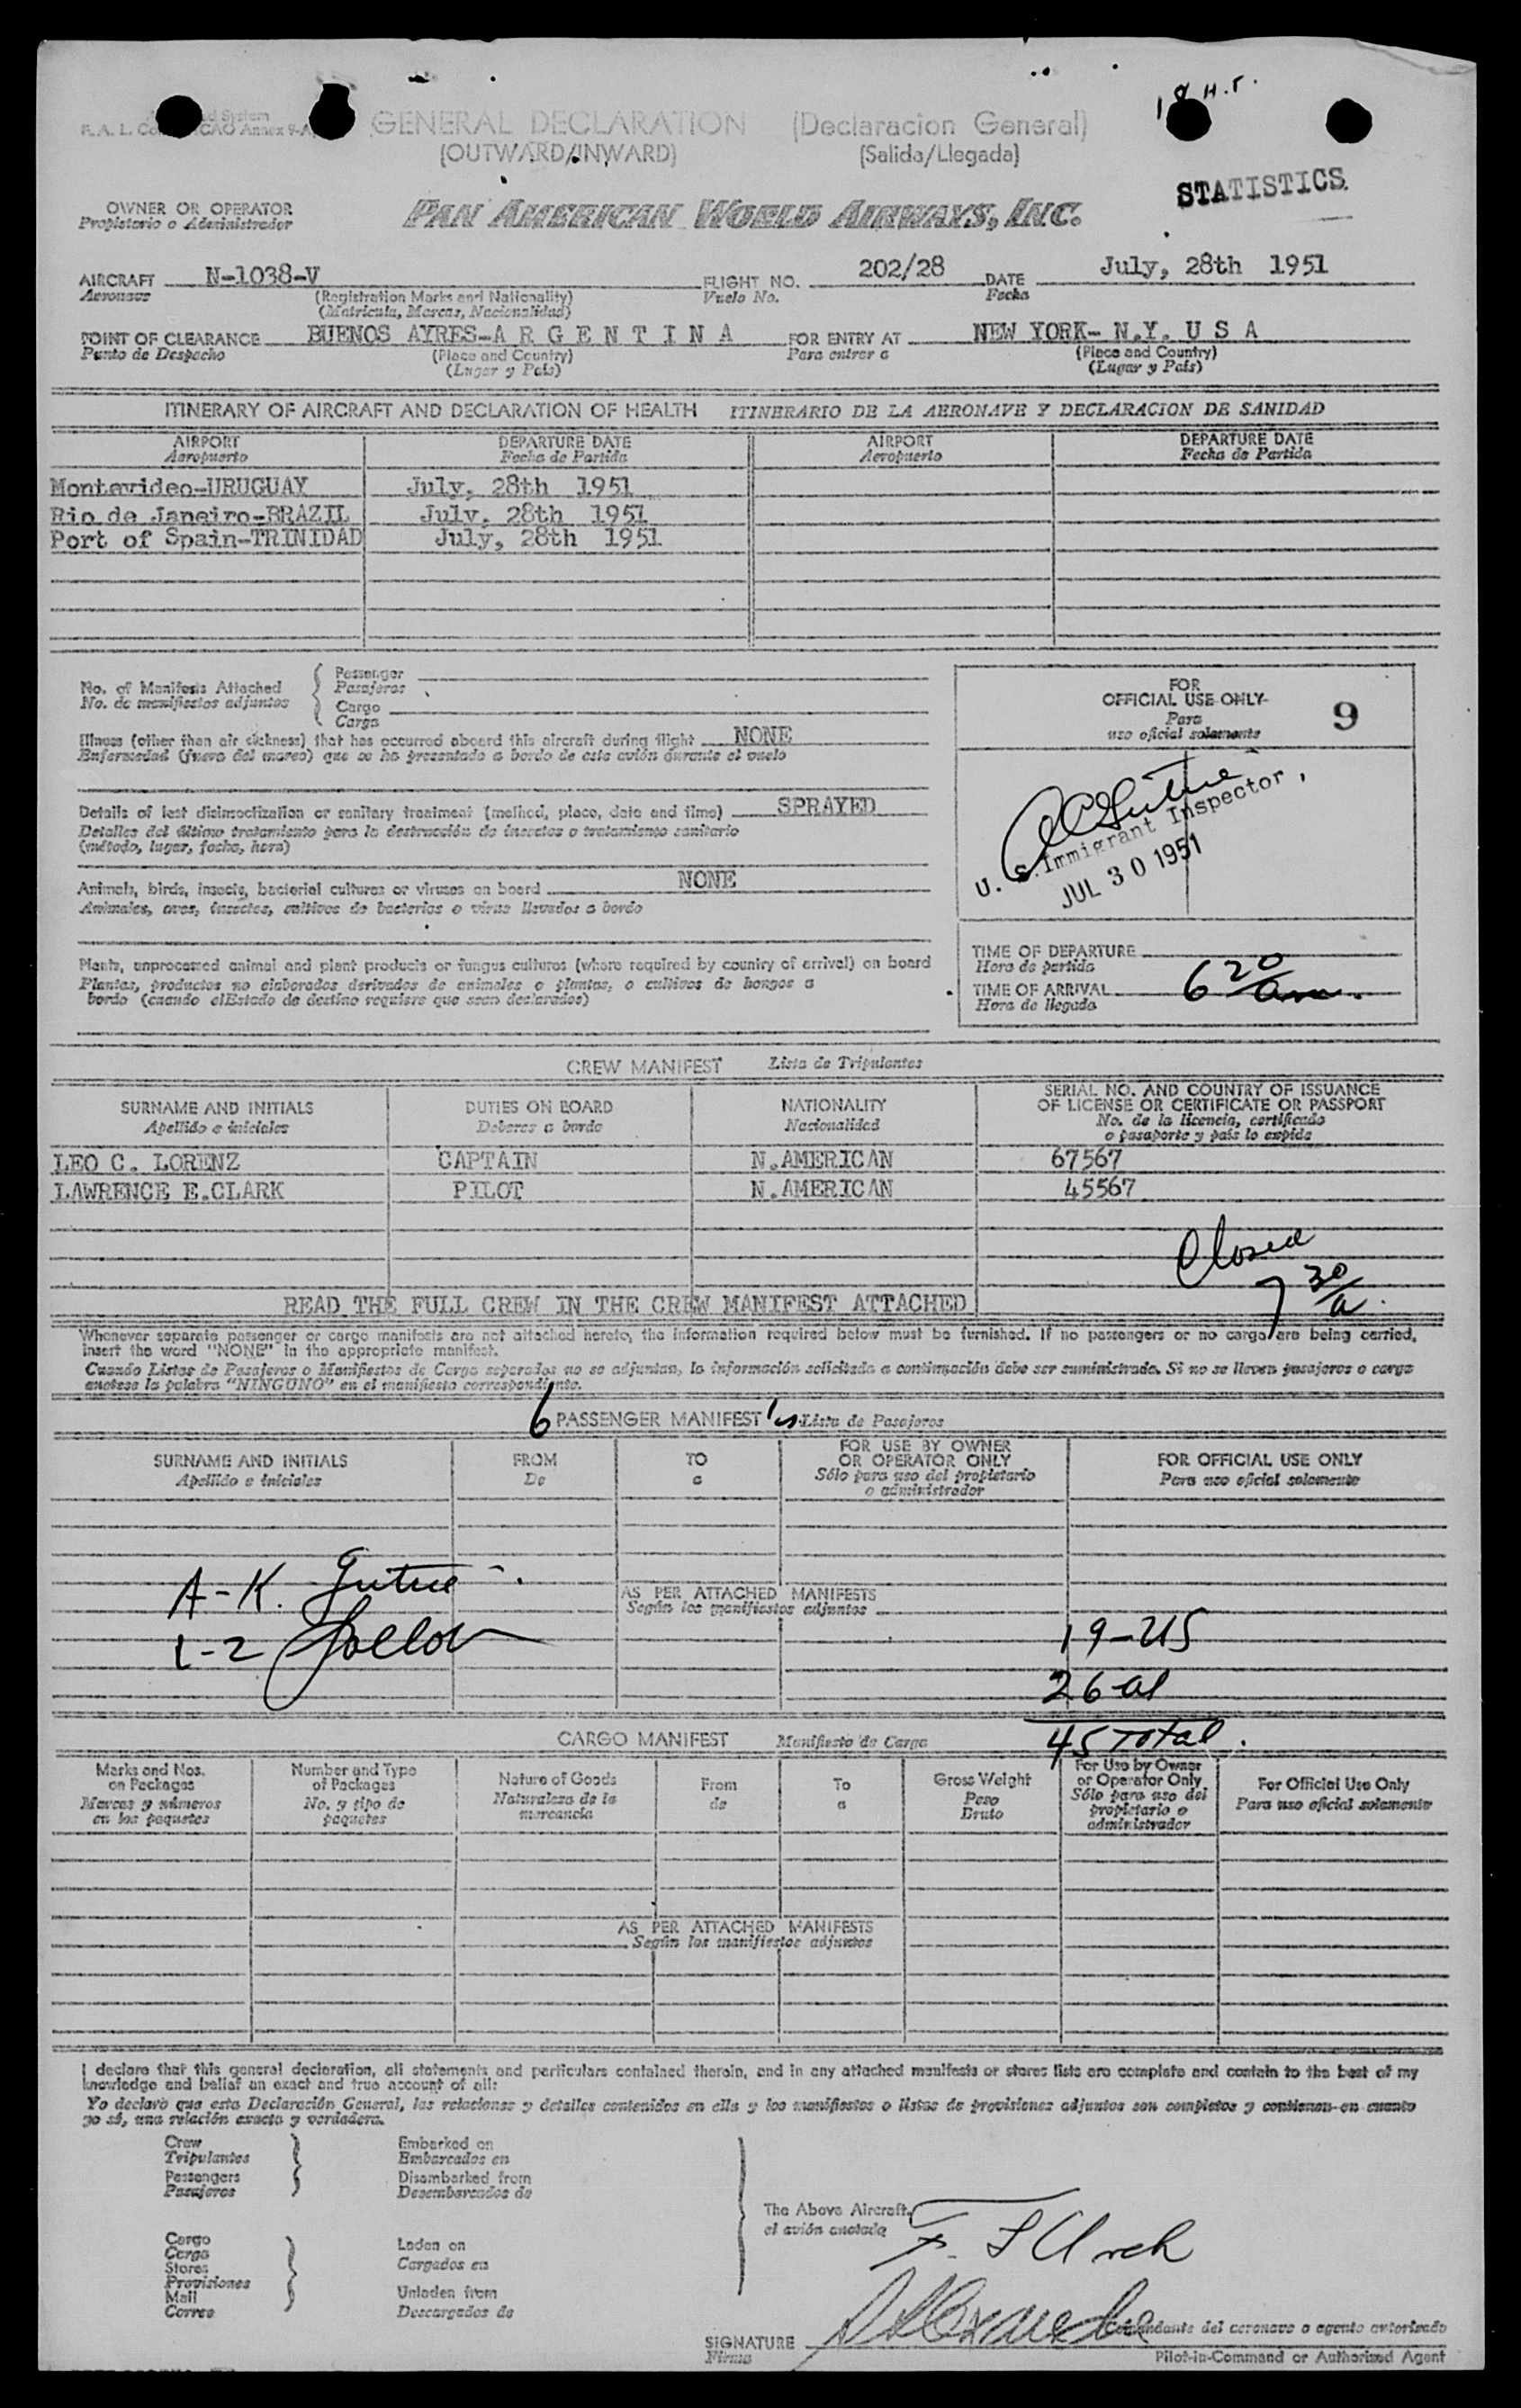 18 H.T.
GENERAL DECLARATION (Declaracion General)
(OUTWARD/INWARD) (Salida/Llegada)
STATISTICS
OWNER OR OPERATOR
Propietario o Administrador
PAN AMERICAN WORLD AIRWAYS, INC.
AIRCRAFT N-1038-V FLIGHT NO. 202/28 DATE July, 28th 1951
Aeronave (Registration Marks and Nationality) Vuelo No. Fecha
(Matricula, Marcas, Nacionalidad)
POINT OF CLEARANCE BUENOS AYRES-A R G E N T I N A FOR ENTRY AT NEW YORK- N.Y. U S A
Punto de Despacho (Place and Country) Para entrar a (Place and Country)
(Lugar y País) (Lugar y País)
ITINERARY OF AIRCRAFT AND DECLARATION OF HEALTH ITINERARIO DE LA AERONAVE Y DECLARACION DE SANIDAD
AIRPORT DEPARTURE DATE AIRPORT DEPARTURE DATE
Aeropuerto Fecha de Partida Aeropuerto Fecha de Partida
Montevideo-URUGUAY July, 28th 1951
Rio de Janeiro-BRAZIL July, 28th 1951
Port of Spain-TRINIDAD July, 28th 1951
No. of Manifests Attached
No. de manifiestos adjuntos
Passenger
Pasajeros
Cargo
Carga
FOR
OFFICIAL USE ONLY
Para
uso oficial solamente
9
Illness (other than air sickness) that has occurred aboard this aircraft during flight NONE
Enfermedad (fuera del mareo) que se ha presentado a bordo de este avión durante el vuelo
Details of last disinsectization or sanitary treatment (method, place, date and time) SPRAYED
Detalles del último tratamiento para la destrucción de insectos o tratamiento sanitario
(método, lugar, fecha, hora)
U. S. Immigrant Inspector
JUL 30 1951
Animals, birds, insects, bacterial cultures or viruses on board NONE
Animales, aves, insectos, cultivos de bacterias o virus llevados a bordo
Plants, unprocessed animal and plant products or fungus cultures (where required by country of arrival) on board
Plantas, productos no elaborados derivados de animales o plantas, o cultivos de hongos a
bordo (cuando elEstado de destino requiere que sean declarados)
TIME OF DEPARTURE
Hora de partida
TIME OF ARRIVAL 6 20 am.
Hora de llegada
CREW MANIFEST Lista de Tripulantes
SURNAME AND INITIALS DUTIES ON BOARD NATIONALITY SERIAL NO. AND COUNTRY OF ISSUANCE
OF LICENSE OR CERTIFICATE OR PASSPORT
Apellido e iniciales Deberes a bordo Nacionalidad No. de la licencia, certificado
o pasaporte y país lo expide
LEO C. LORENZ CAPTAIN N.AMERICAN 67567
LAWRENCE E.CLARK PILOT N.AMERICAN 45567
Closed
7 30 a.
READ THE FULL CREW IN THE CREW MANIFEST ATTACHED
Whenever separate passenger or cargo manifests are not attached hereto, the information required below must be furnished. If no passengers or no cargo are being carried,
insert the word "NONE" in the appropriate manifest.
Cuando Listas de Pasajeros o Manifiestos de Carga separados no se adjuntan, la información solicitada a continuación debe ser suministrada. Si no se llevan pasajeros o carga
anotese la palabra "NINGUNO" en el manifiesto correspondiente.
6 PASSENGER MANIFEST Lista de Pasajeros
SURNAME AND INITIALS FROM TO FOR USE BY OWNER
OR OPERATOR ONLY FOR OFFICIAL USE ONLY
Apellido e iniciales De a Sólo para uso del propietario
o administrador Para uso oficial solamente
A-K.
AS PER ATTACHED MANIFESTS
Según los manifiestos adjuntos
L-Z
19-US
26 al
45 Total.
CARGO MANIFEST Manifiesto de Carga
Marks and Nos.
on Packages
Marcas y números
en los paquetes
Number and Type
of Packages
No. y tipo de
paquetes
Nature of Goods
Naturaleza de la
mercancía
From
de
To
a
Gross Weight
Peso
Bruto
For Use by Owner
or Operator Only
Sólo para uso del
propietario o
administrador
For Official Use Only
Para uso oficial solamente
AS PER ATTACHED MANIFESTS
Según los manifiestos adjuntos
I declare that this general declaration, all statements and particulars contained therein, and in any attached manifests or stores lists are complete and contain to the best of my
knowledge and belief an exact and true account of all:
Yo declaro que esta Declaración General, las relaciones y detalles contenidos en ella y los manifiestos o listas de provisiones adjuntos son completos y contienen en cuanto
yo sé, una relación exacta y verdadera.
Crew
Tripulantes
Passengers
Pasajeros
Embarked on
Embarcados en
Disembarked from
Desembarcados de
The Above Aircraft.
el avión anotado
Cargo
Carga
Stores
Provisiones
Mail
Correo
Laden on
Cargados en
Unladen from
Descargados de
SIGNATURE
Firma
Comandante del aeronave o agente autorizado
Pilot-in-Command or Authorized Agent